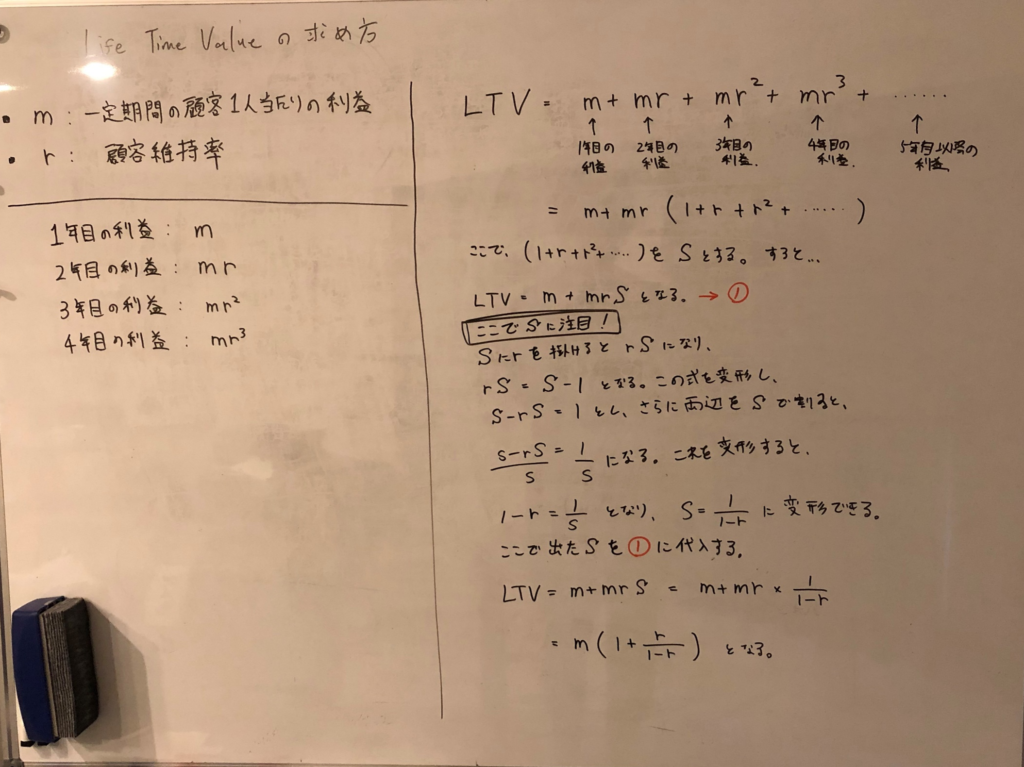 Life Time Value の求め方
・ m : 一定期間の顧客1人当たりの利益
・ r : 顧客維持率
1年目の利益 : m
2年目の利益 : mr
3年目の利益 : mr²
4年目の利益 : mr³
LTV = m + mr + mr² + mr³ + ……
↑ ↑ ↑ ↑ ↑
1年目の利益 2年目の利益 3年目の利益. 4年目の利益. 5年目以降の利益.
= m + mr (1 + r + r² + ……)
ここで、(1+r+r²+…‥)を Sとする。すると…
LTV = m + mrS となる。→ ①
ここでSに注目!
Sにrを掛けると rSになり、
rS = S-1 となる。この式を変形し、
S-rS = 1 とし、さらに両辺をSで割ると、
s-rS/S = 1/S になる。これを変形すると、
1-r = 1/S となり、 S = 1/1-r に変形できる。
ここで出たSを①に代入する。
LTV = m+mrS = m+mr × 1/1-r
= m(1 + r/1-r) となる。